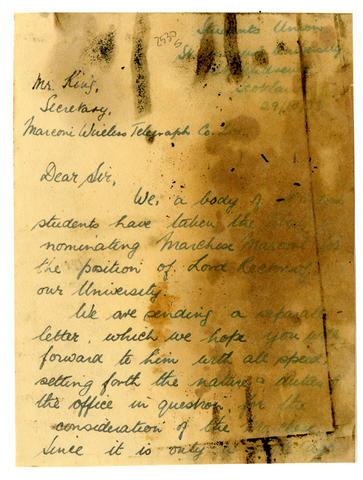 Students' Union
Scotland
Mr. King,
Secretary,
Marconi Wireless Telegraph Co.
Dear Sir,
We, a body of
students have taken the
nominating Marchese Marconi for
the position of Lord Rector of
our University.
We are sending a separate
letter, which we hope you will
forward to him with all speed
setting forth the nature & duties of
the office in question for the
consideration of the Marchese.
Since it is only a